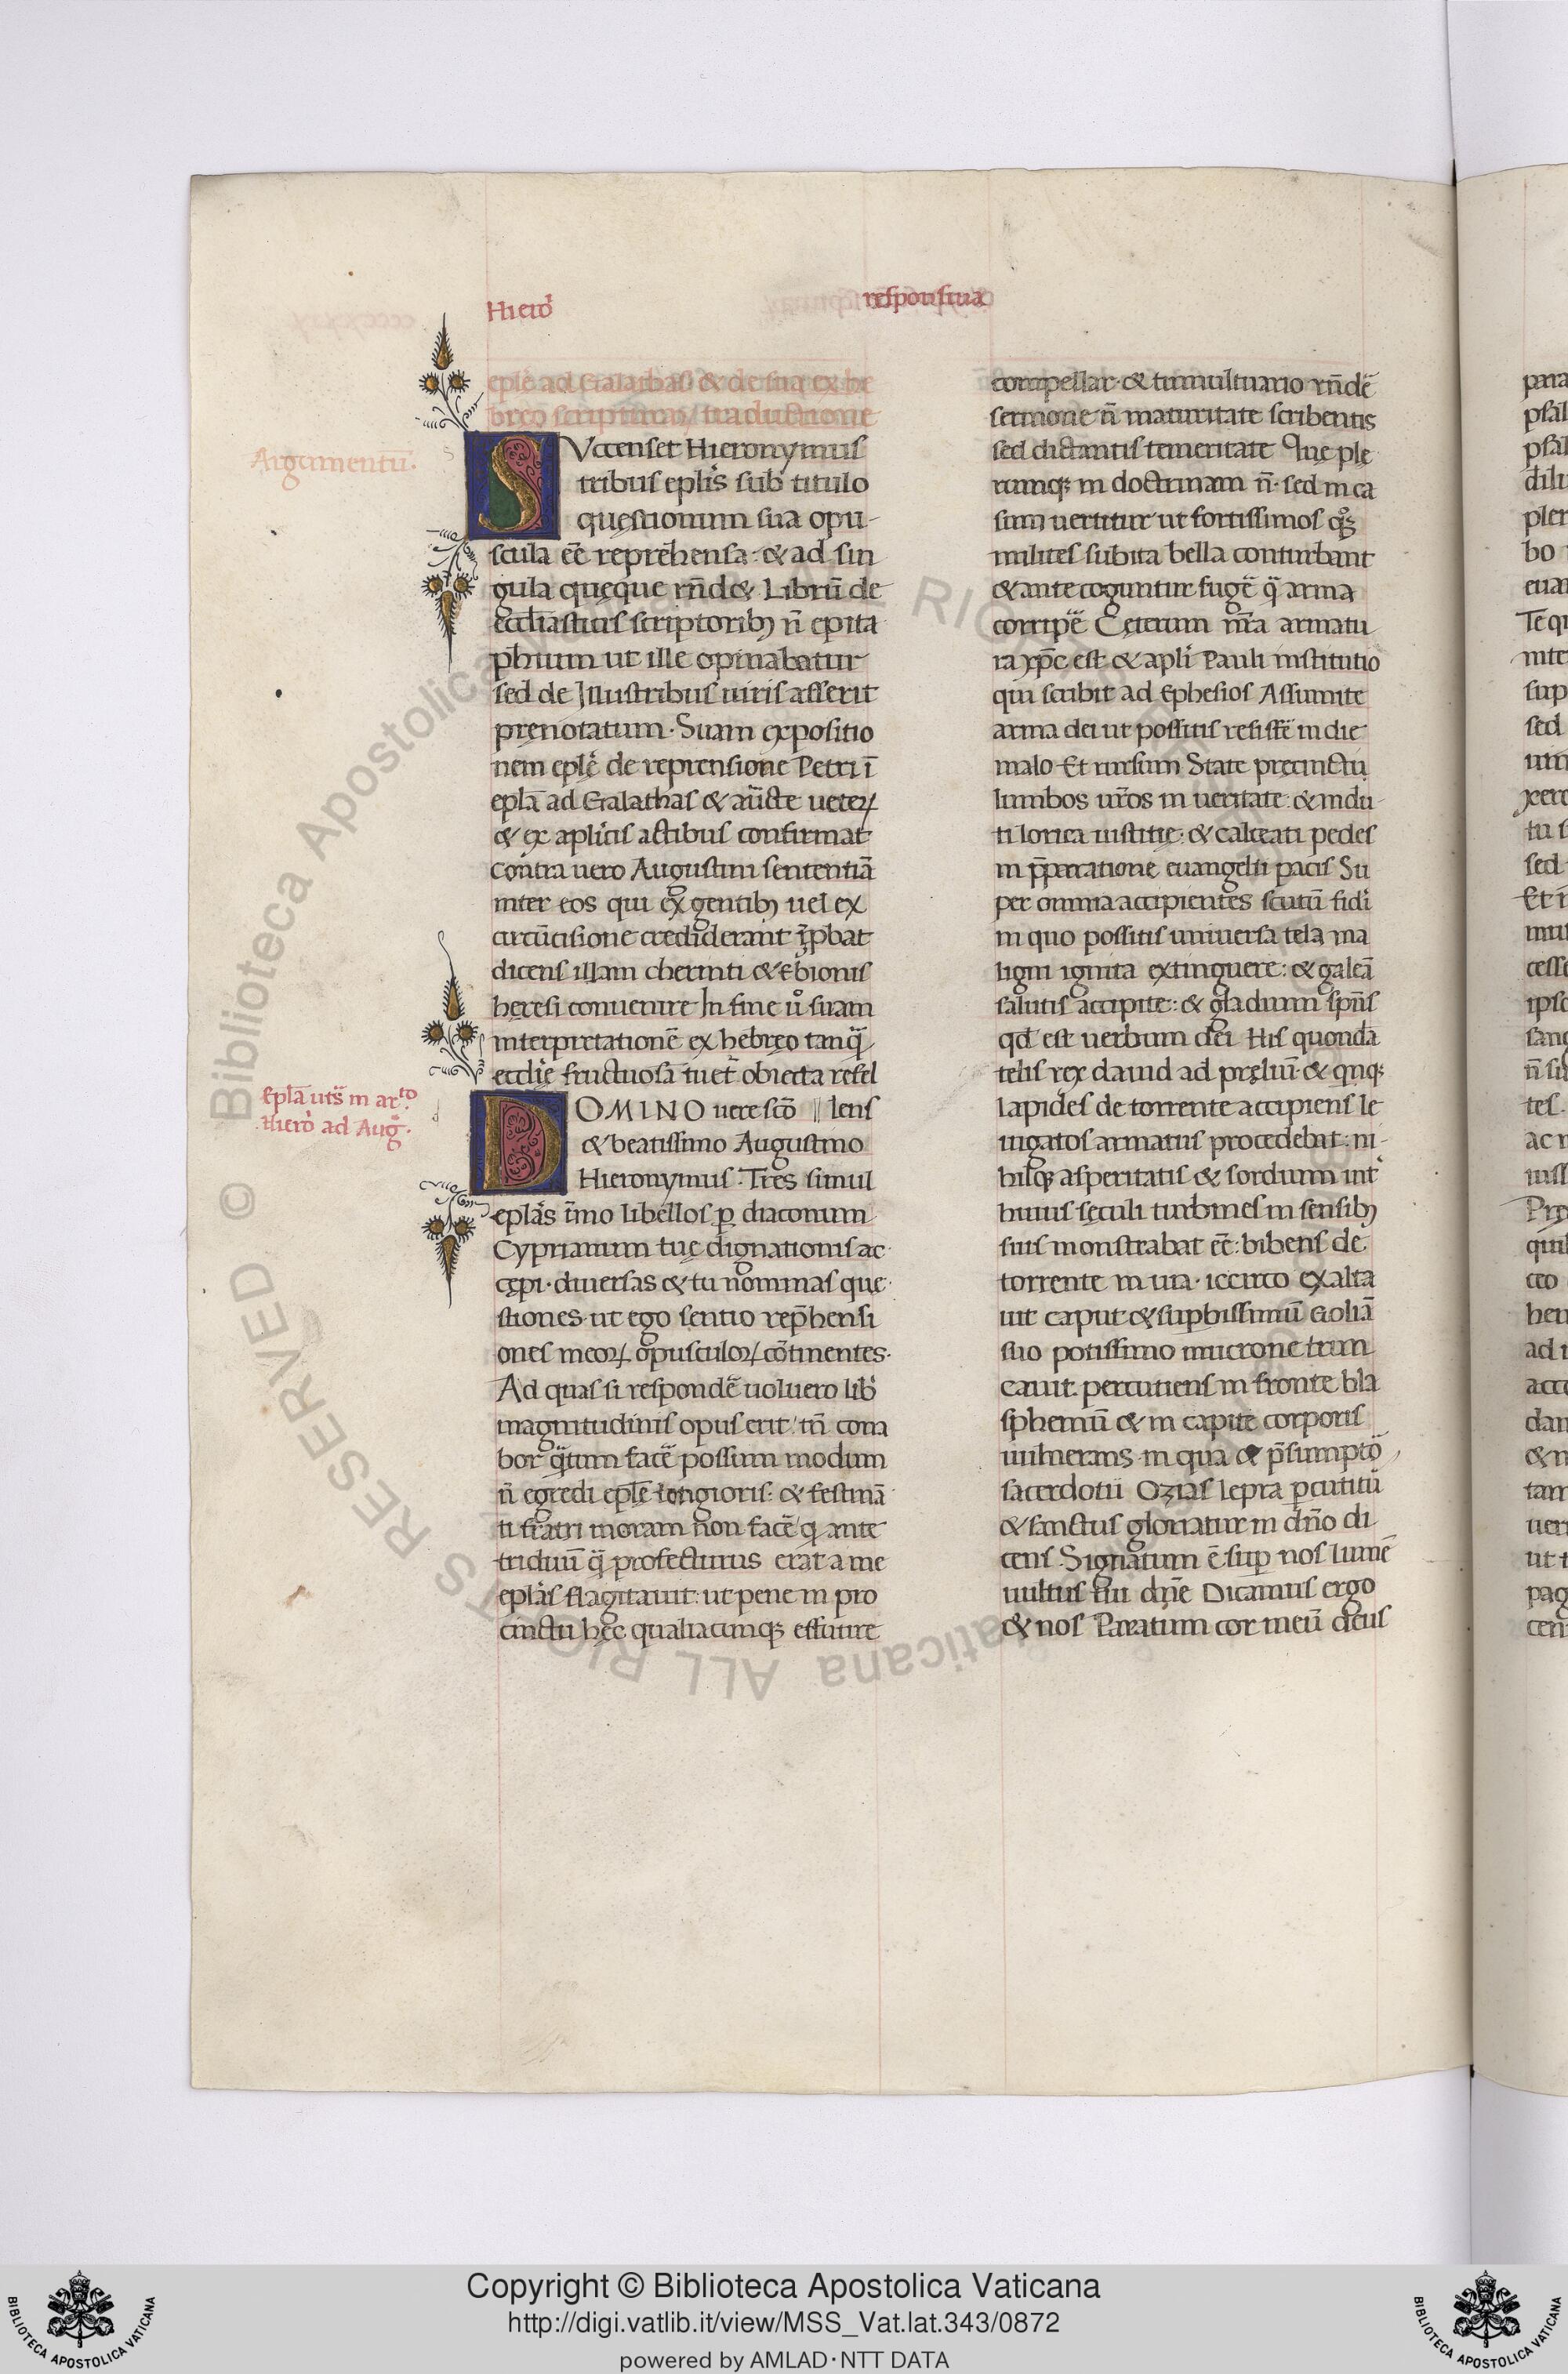 Hiero᷒ responsiua
eplę ad Galathas & de sua ex he
breo scripturaꝝ traductione
Argumentū.
SVccenset Hieronymus
tribus epl̄is sub titulo
questionum sua opu-
scula eē̄ reprehensa: & ad sin
gula quęque rn̄de& Librū de
eccl̄iasticis scriptorib; n̄ epita
phium ut ille opinabatur
sed de Illustribus uiris asserit
pręnotatum. Suam expositio
nem eplę de reprensione Petri ī
epl̄a ad Galathas & au᷒cte ueteꝝ
& ex apl̄icis actibus confirmat
contra uero Augustini sententiā
inter eos qui ex gentib; uel ex
circūcisione crediderant īpbat
dicens illam cherinti & Ebionis
heresi conuenire In fine uº suam
interpretationē ex hebręo tanq̄
eccl̄ię fructuosā tuet᷒ obiecta refel
epl̄a uts̄ in ar.to
Hiero᷒ ad Aug᷒.
DOMINO uere sc̄o || lens
& beatissimo Augustino
Hieronymus. Tres simul
epl̄as īmo libellos ꝑ diaconum
Cyprianum tuę dignationis ac
cępi. diuersas & tu nominas que
stiones ut ego sentio rep̄hensi
ones meoꝝ opusculoꝝ cōtinentes.
Ad quas si respondē uoluero lib᷒
magnitudinis opus erit: tn̄ cona
bor q̄tum facē possum modum
n̄ egredi epl̄ę longioris: & festinā
ti fratri moram non facē q ante
triduū q̄ profecturus erat a me
epl̄as flagitauit: ut pene in pro
cinctu hęc qualiacunq; effutire
compellar. & tumultuario rn̄dē
sermone n̄ maturitate scribentis
sed dictantis temeritate Que ple
runq; in doctrinam n̄. sed in ca
sum uertitur ut fortissimos qºs
milites subita bella conturbant
& ante coguntur fugē q̄ arma
corripē Cęterum nr̄a armatu
ra xp̄c est & apl̄i Pauli institutio
qui scribit ad Ephesios Assumite
arma dei ut possitis resistē in die
malo Et rursum State precincti
lumbos ur̄os in ueritate: & indu-
ti lorica iustitię: & calceati pedes
in p̄paratione euangelii pacis Su
per omnia accipientes scutū fidi
in quo possitis uniuersa tela ma
ligni ignita extinguere: & galeā
salutis accipite: & gladium sp̄us
qd̄ est uerbum dei His quondā
telis rex dauid ad pręliū. & qnq;
lapides de torrente accipiens le
uigatos armatus procedebat: ni-
hilq; asperitatis & sordium int᷒
huius sęculi turbines in sensib;
suis monstrabat eē: bibens de
torrente in uia. iccirco exalta
uit caput & suꝑbissimū Goliā
suo potissimo mucrone trun
cauit. percutiens in fronte bla
sphemū & in capite corporis
uulnerans in qua & p̄sumptō
sacerdotii Ozias lepra ꝑcutitū
& sanctus gloriatur in dn̄o di
cens. Signatum ē suꝑ nos lumē
uultus tui dn̄e Dicamus ergo
& nos Paratum cor meū deus
Copyright © Biblioteca Apostolica Vaticana
http://digi.vatlib.it/view/MSS_Vat.lat.343/0872
powered by AMLAD·NTT DATA